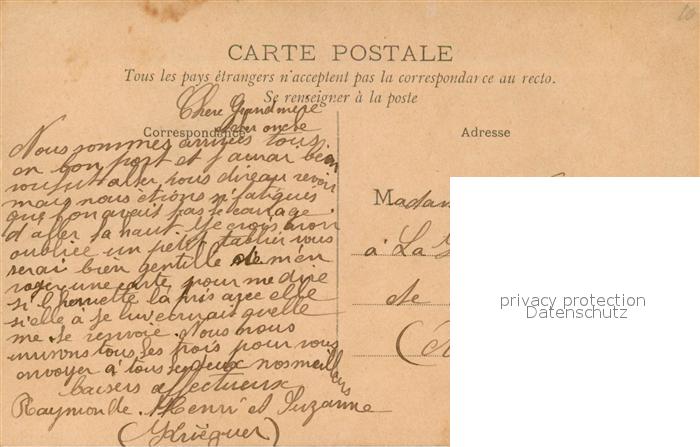 CARTE POSTALE
Tous les pays étrangers n'acceptent pas la correspondance au recto.
Se renseigner à la poste
Chere Grandmere
Correspondance
Adresse
cher oncle
Nous sommes arrivées tous
en bon port et j'aurai bien
voulut aller vous dire au revoir
mais nous étions si fatigues
que l'on avait pas le courage
d'aller la haut. Je crois avoir
oubliée un petit tablier vous
serai bien gentille de m'en
voyer une carte pour me dire
si l'
la pris avec elle
si elle à
quelle
me le renvoie. Nous nous
unissons tous les trois pour vous
envoyer à tous les deux nos meilleurs
baisers affectueux
Raymonde. Henri et Suzanne
Madam
à La
de
privacy protection
Datenschutz